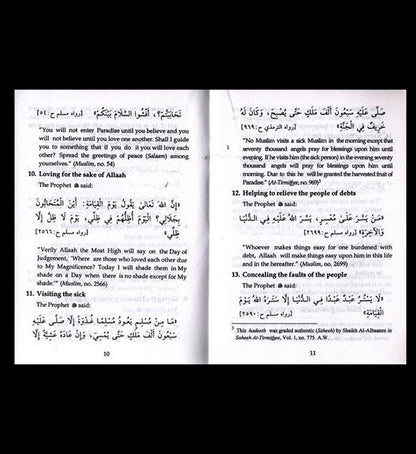 تَحَابَبْتُمْ؟، أَفْشُوا السَّلَامَ بَيْنَكُمْ» [رواه مسلم ح: ٥٤]
"You will not enter Paradise until you believe and you
will not believe until you love one another. Shall I guide
you to something that if you do it you will love each
other? Spread the greetings of peace (Salaam) among
yourselves." (Muslim, no. 54)
10. Loving for the sake of Allaah
The Prophet ﷺ said:
«إِنَّ اللهَ تَعَالَىٰ يَقُولُ يَوْمَ الْقِيَامَةِ: أَيْنَ الْمُتَحَابُّونَ
بِجَلَالِي؟ الْيَوْمَ أُظِلُّهُمْ فِي ظِلِّي، يَوْمَ لَا ظِلَّ إِلَّا
ظِلِّي» [رواه مسلم ح: ٢٥٦٦]
"Verily Allaah the Most High will say on the Day of
Judgement, 'Where are those who loved each other due
to My Magnificence? Today I will shade them in My
shade on a Day when there is no shade except for My
shade.'" (Muslim, no. 2566)
11. Visiting the sick
The Prophet ﷺ said:
«مَا مِنْ مُسْلِمٍ يَعُودُ مُسْلِمًا غُدْوَةً إِلَّا صَلَّى عَلَيْهِ
سَبْعُونَ أَلْفَ مَلَكٍ حَتَّى يُمْسِيَ، وَإِنْ عَادَهُ عَشِيَّةً إِلَّا
10
صَلَّى عَلَيْهِ سَبْعُونَ أَلْفَ مَلَكٍ حَتَّى يُصْبِحَ، وَكَانَ لَهُ
خَرِيفٌ فِي الْجَنَّةِ» [رواه الترمذي ح: ٩٦٩]
"No Muslim visits a sick Muslim in the morning except that
seventy thousand angels pray for blessings upon him until
evening. If he visits him (the sick person) in the evening seventy
thousand angels will pray for blessings upon him until
morning. Due to this he will be granted the harvested fruit of
Paradise." (At-Tirmidhee, no. 969)³
12. Helping to relieve the people of debts
The Prophet ﷺ said:
«مَنْ يَسَّرَ عَلَىٰ مُعْسِرٍ، يَسَّرَ اللهُ عَلَيْهِ فِي الدُّنْيَا
وَالْآخِرَةِ» [رواه مسلم ح: ٢٦٩٩]
"Whoever makes things easy for one burdened with
debt, Allaah will make things easy upon him in this life
and in the hereafter." (Muslim, no. 2699)
13. Concealing the faults of the people
The Prophet ﷺ said:
«لَا يَسْتُرُ عَبْدٌ عَبْدًا فِي الدُّنْيَا إِلَّا سَتَرَهُ اللهُ يَوْمَ
الْقِيَامَةِ» [رواه مسلم ح: ٢٥٩٠]
³ This hadeeth was graded authentic (Saheeh) by Shaikh Al-Albaanee in
Saheeh At-Tirmidhee, Vol. 1, no. 775. A.W.
11